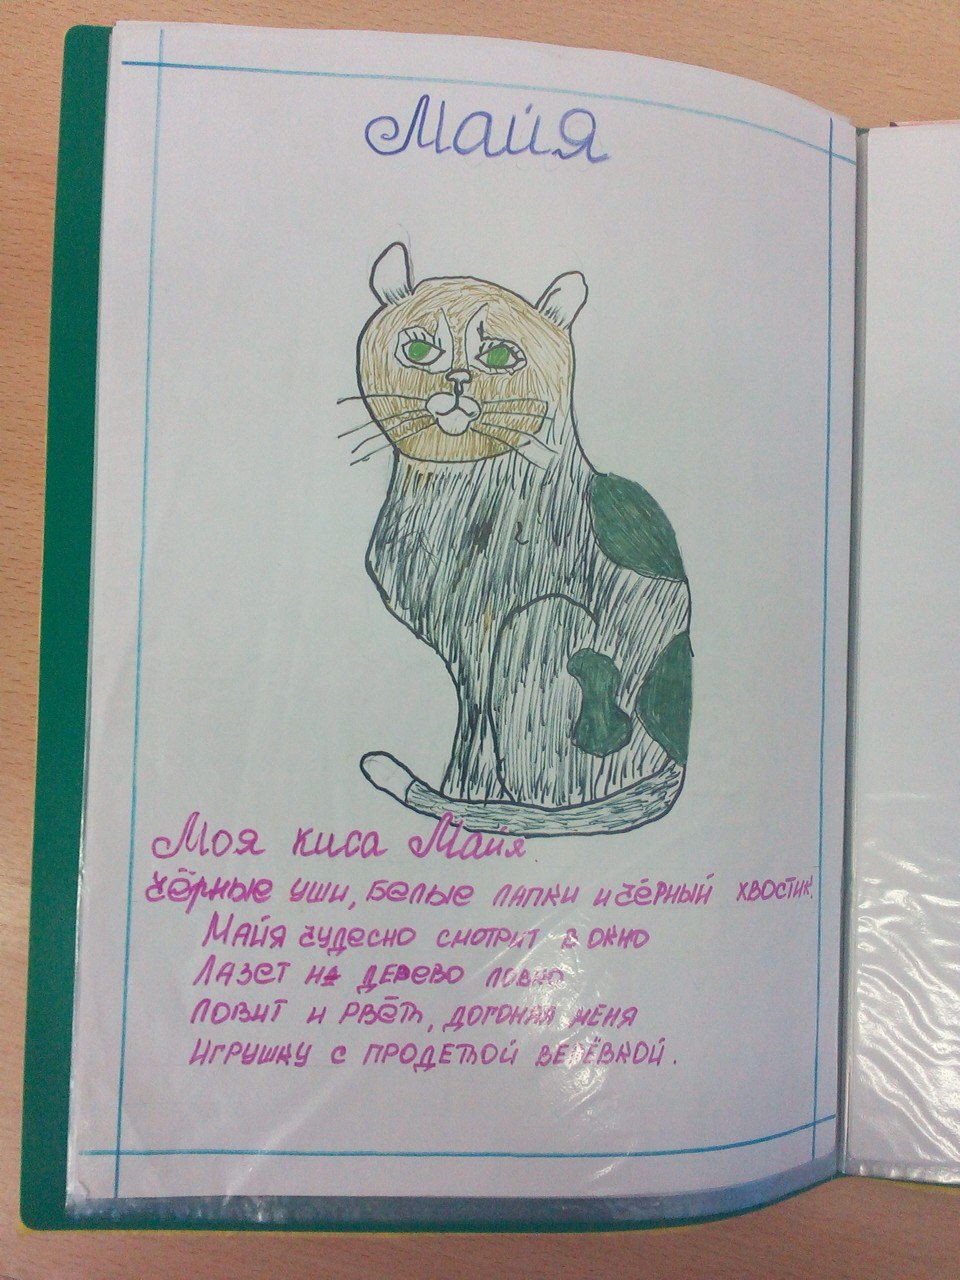 Майя
Моя киса Майя.
Чёрные уши, белые лапки и чёрный хвостик!
Майя чудесно смотрит в окно
Лазет на дерево ловко
Ловит и рвёть, догоняя меня
Игрушку с продетой верёвкой.